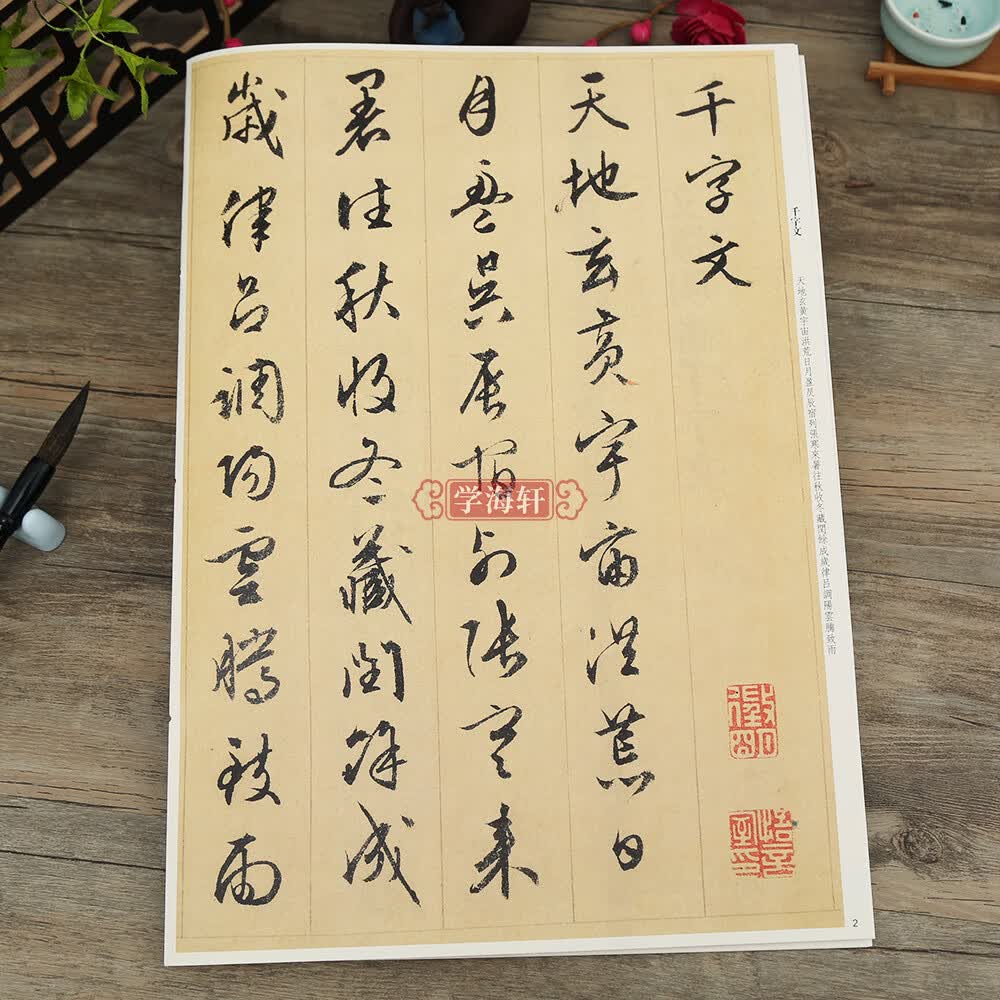 千字文
天地玄黃宇宙洪荒日
月盈昃辰宿列張寒來
暑往秋收冬藏閏餘成
歲律呂調陽雲騰致雨
千字文
天地玄黃宇宙洪荒日月盈昃辰宿列張寒來暑往秋收冬藏閏餘成歲律呂調陽雲騰致雨
学海轩
2